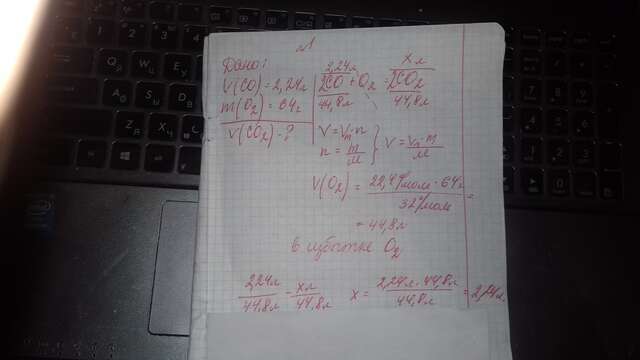 №1
Дано:
V(CO) = 2,24л
m(O₂) = 64г
V(CO₂) - ?
2,24л x л
2CO + O₂ = 2CO₂
44,8л 44,8л
V = Vm·n
n = m/M } V = Vm·m/M
V(O₂) = 22,4л/моль · 64г / 32г/моль =
= 44,8л
в избытке O₂
2,24л/44,8л = xл/44,8л x = 2,24л · 44,8л / 44,8л = 2,24л.